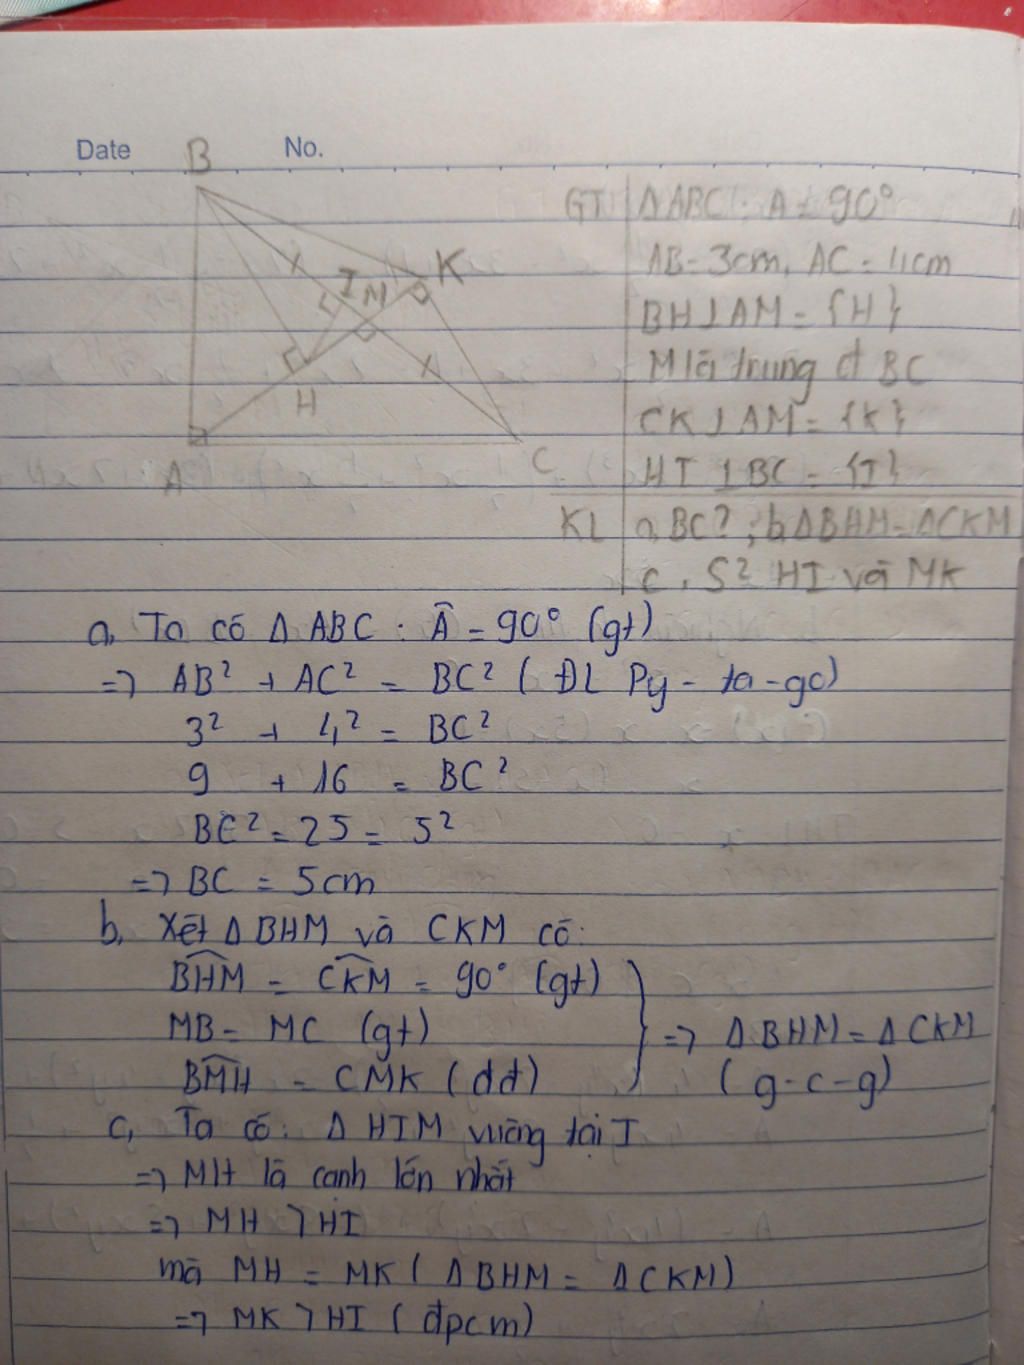 Date No.
B
K
I M
H
A
C
GT ΔABC : A = 90°
AB = 3cm, AC = 4cm
BH ⊥ AM = {H}
M là trung đ BC
CK ⊥ AM = {K}
HI ⊥ BC = {I}
KL a, BC? ; b, ΔBHM = ΔCKM
c, S² HI và MK
a, Ta có Δ ABC : Â = 90° (gt)
=> AB² + AC² = BC² ( ĐL Py - ta - go)
3² + 4² = BC²
9 + 16 = BC²
BC² = 25 = 5²
=> BC = 5cm
b, Xét Δ BHM và CKM có:
BHM = CKM = 90° (gt)
MB = MC (gt)
BMH = CMK ( đđ)
=> Δ BHM = Δ CKM
( g - c - g)
c, Ta có: Δ HIM vuông tại I
=> MH là cạnh lớn nhất
=> MH > HI
mà MH = MK ( Δ BHM = Δ CKM)
=> MK > HI ( đpcm)